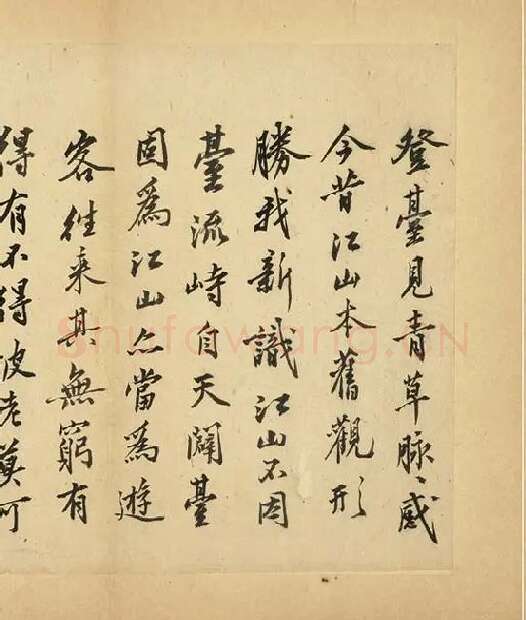 登臺見青草脉〻感
今昔江山本舊觀形
勝我新識江山不因
臺流峙自天闢臺
固爲江山亦當爲遊
客往来其無窮有
得有不得彼老莫可
shufawang.CN